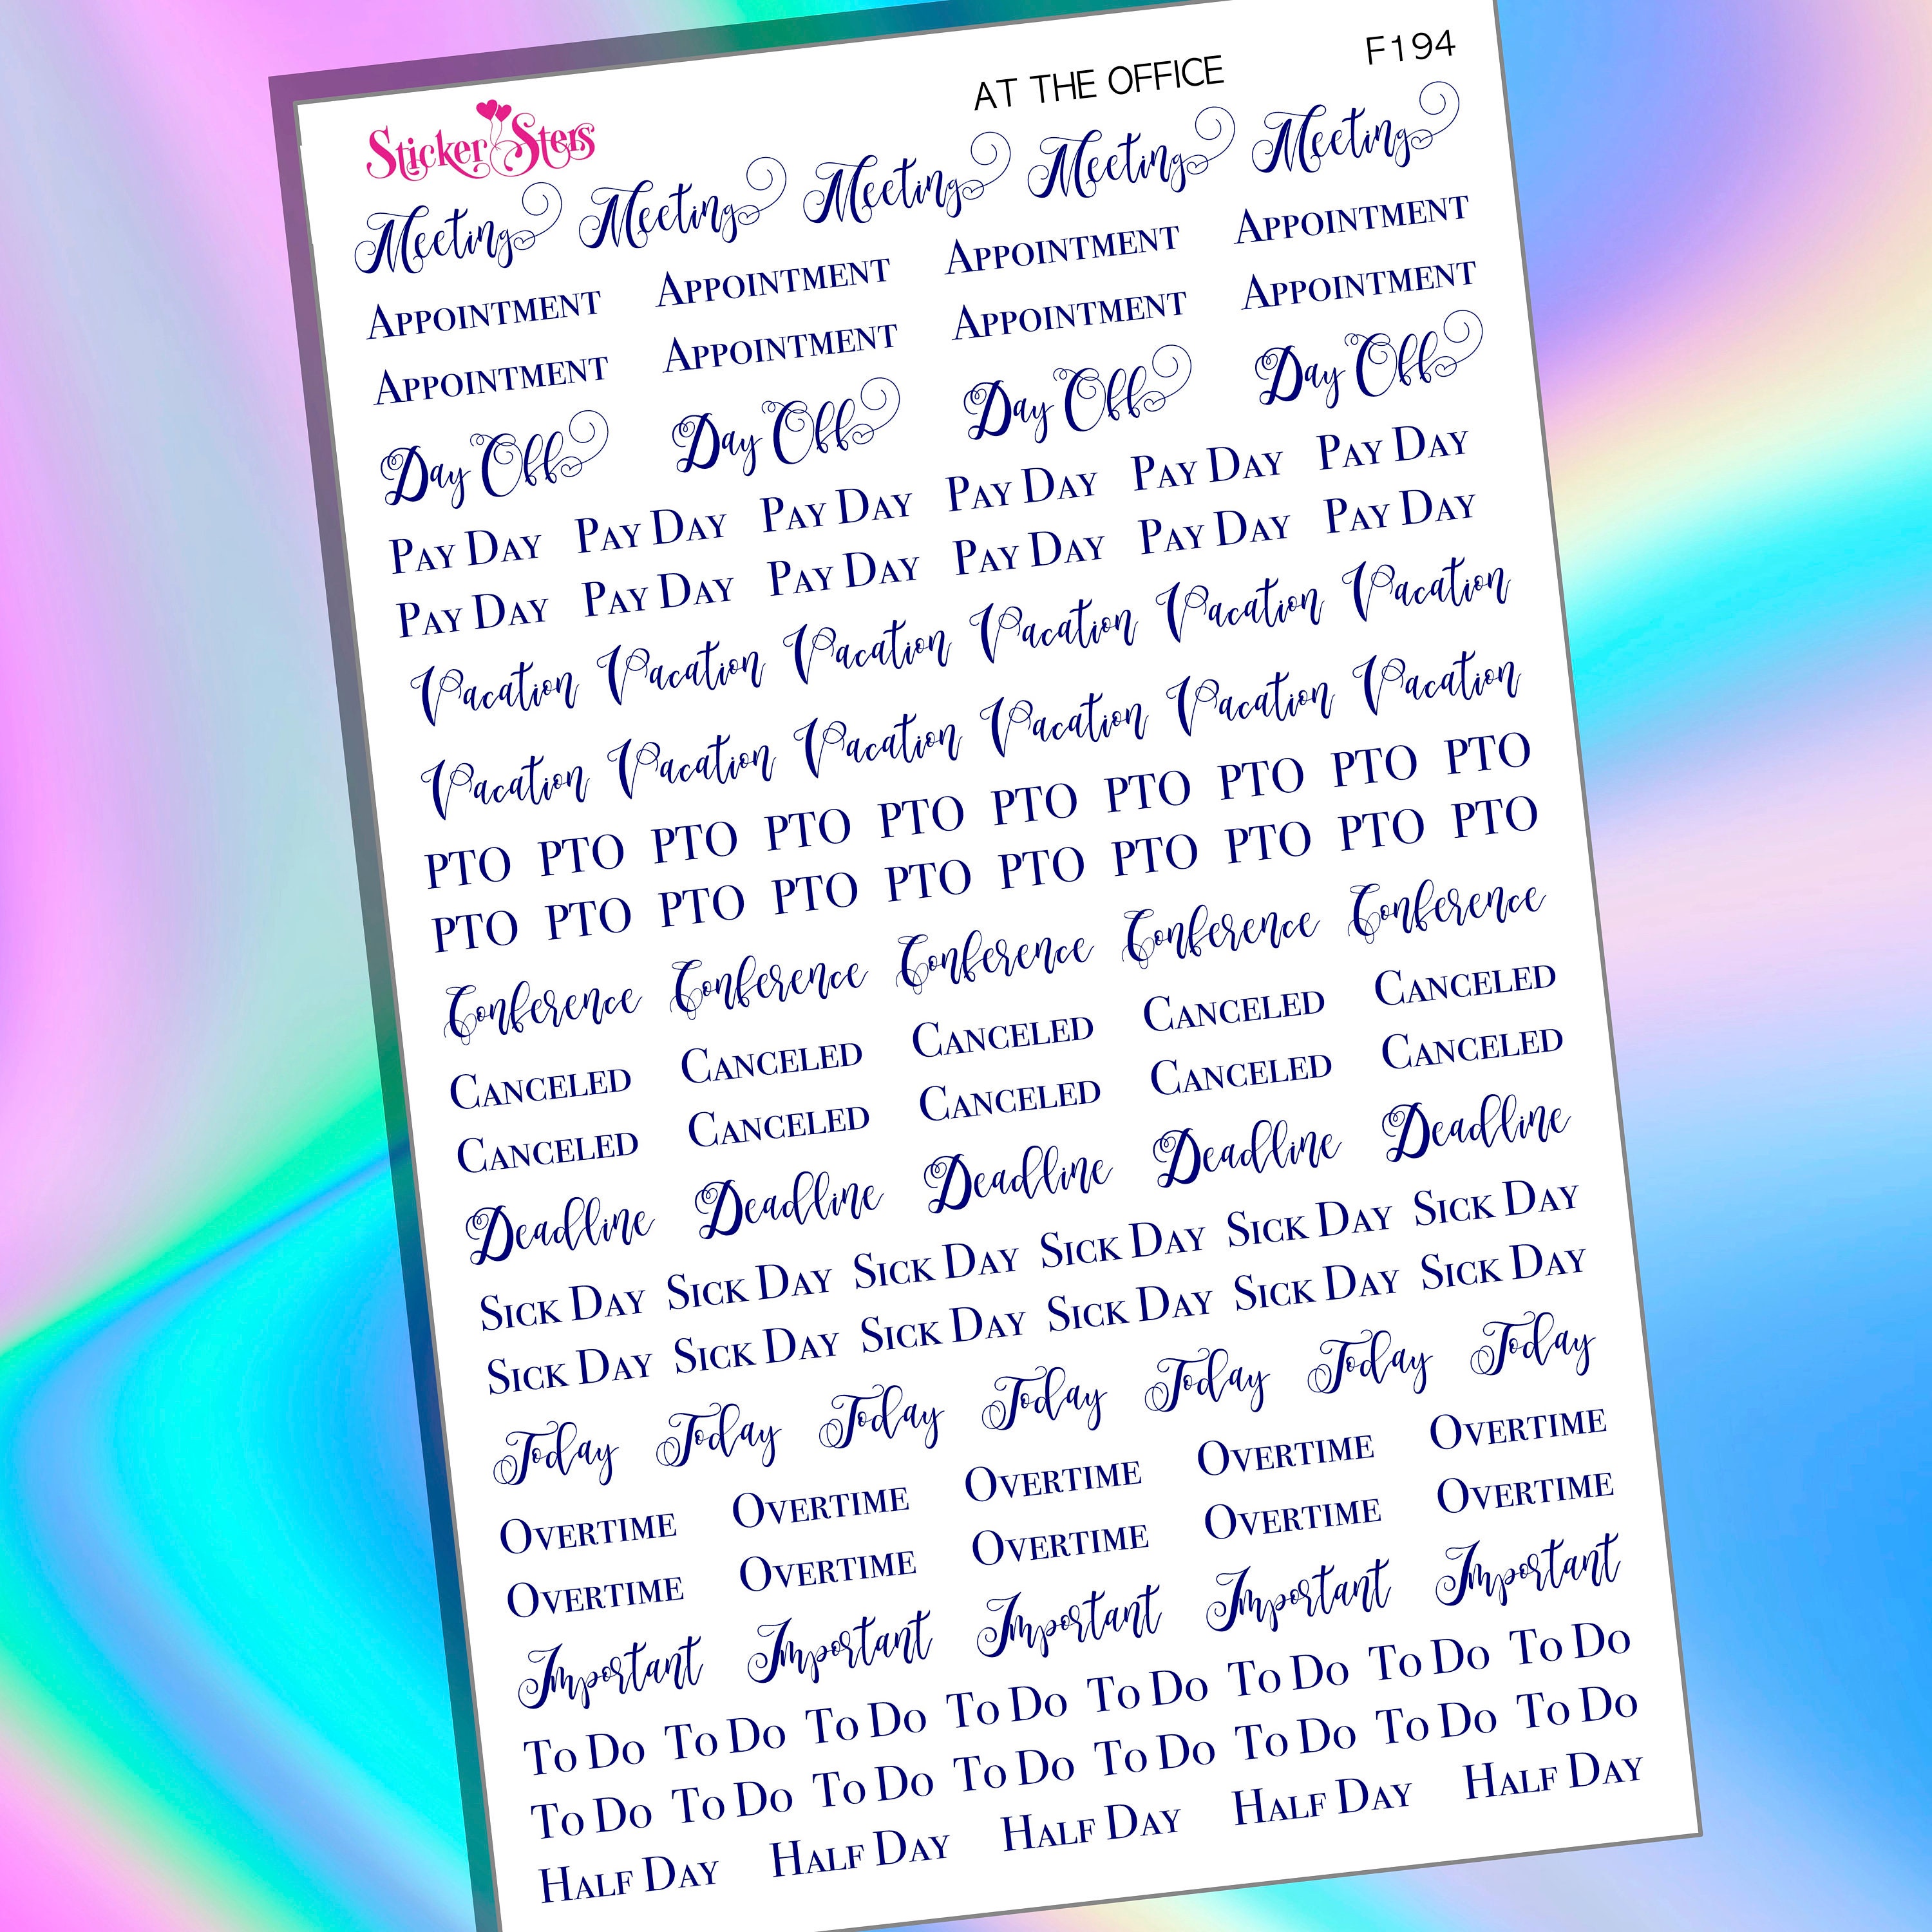 AT THE OFFICE F194
Sticker Sters
Meeting Meeting Meeting Meeting Meeting
Appointment Appointment Appointment Appointment
Appointment Appointment Appointment Appointment
Day Off Day Off Day Off Day Off
Pay Day Pay Day Pay Day Pay Day Pay Day Pay Day
Pay Day Pay Day Pay Day Pay Day Pay Day Pay Day
Vacation Vacation Vacation Vacation Vacation Vacation
Vacation Vacation Vacation Vacation Vacation Vacation
PTO PTO PTO PTO PTO PTO PTO PTO PTO PTO
PTO PTO PTO PTO PTO PTO PTO PTO PTO PTO
Conference Conference Conference Conference Conference
Canceled Canceled Canceled Canceled Canceled
Canceled Canceled Canceled Canceled Canceled
Deadline Deadline Deadline Deadline Deadline
Sick Day Sick Day Sick Day Sick Day Sick Day Sick Day
Sick Day Sick Day Sick Day Sick Day Sick Day Sick Day
Today Today Today Today Today Today Today
Overtime Overtime Overtime Overtime Overtime
Overtime Overtime Overtime Overtime Overtime
Important Important Important Important Important
To Do To Do To Do To Do To Do To Do To Do To Do
To Do To Do To Do To Do To Do To Do To Do To Do
Half Day Half Day Half Day Half Day Half Day